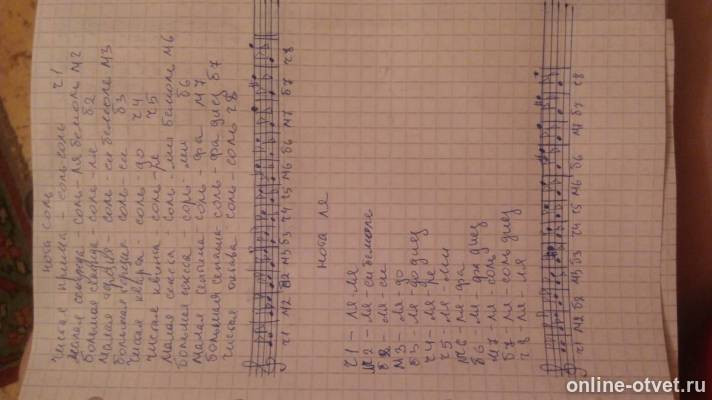 нота соль
чистая прима - соль-соль ч1
малая секунда соль-ля бемоль м2
большая секунда - соль-ля б2
малая терция - соль-си бемоль м3
большая терция - соль-си б3
чистая кварта - соль-до ч4
чистая квинта соль-ре ч5
малая секста соль-ми бемоль м6
большая секста - соль-ми б6
малая септима соль-фа м7
большая септима соль-фа диез б7
чистая октава соль-соль ч8
ч1 м2 б2 м3 б3 ч4 ч5 м6 б6 м7 б7 ч8
нота ля
ч1 - ля-ля
м2 - ля-си бемоль
б2 - ля-си
м3 - ля-до
б3 - ля-до диез
ч4 - ля-ре
ч5 - ля-ми
м6 - ля-фа
б6 - ля-фа диез
м7 - ля-соль
б7 - ля-соль диез
ч8 - ля-ля
ч1 м2 б2 м3 б3 ч4 ч5 м6 б6 м7 б7 ч8
online-otvet.ru